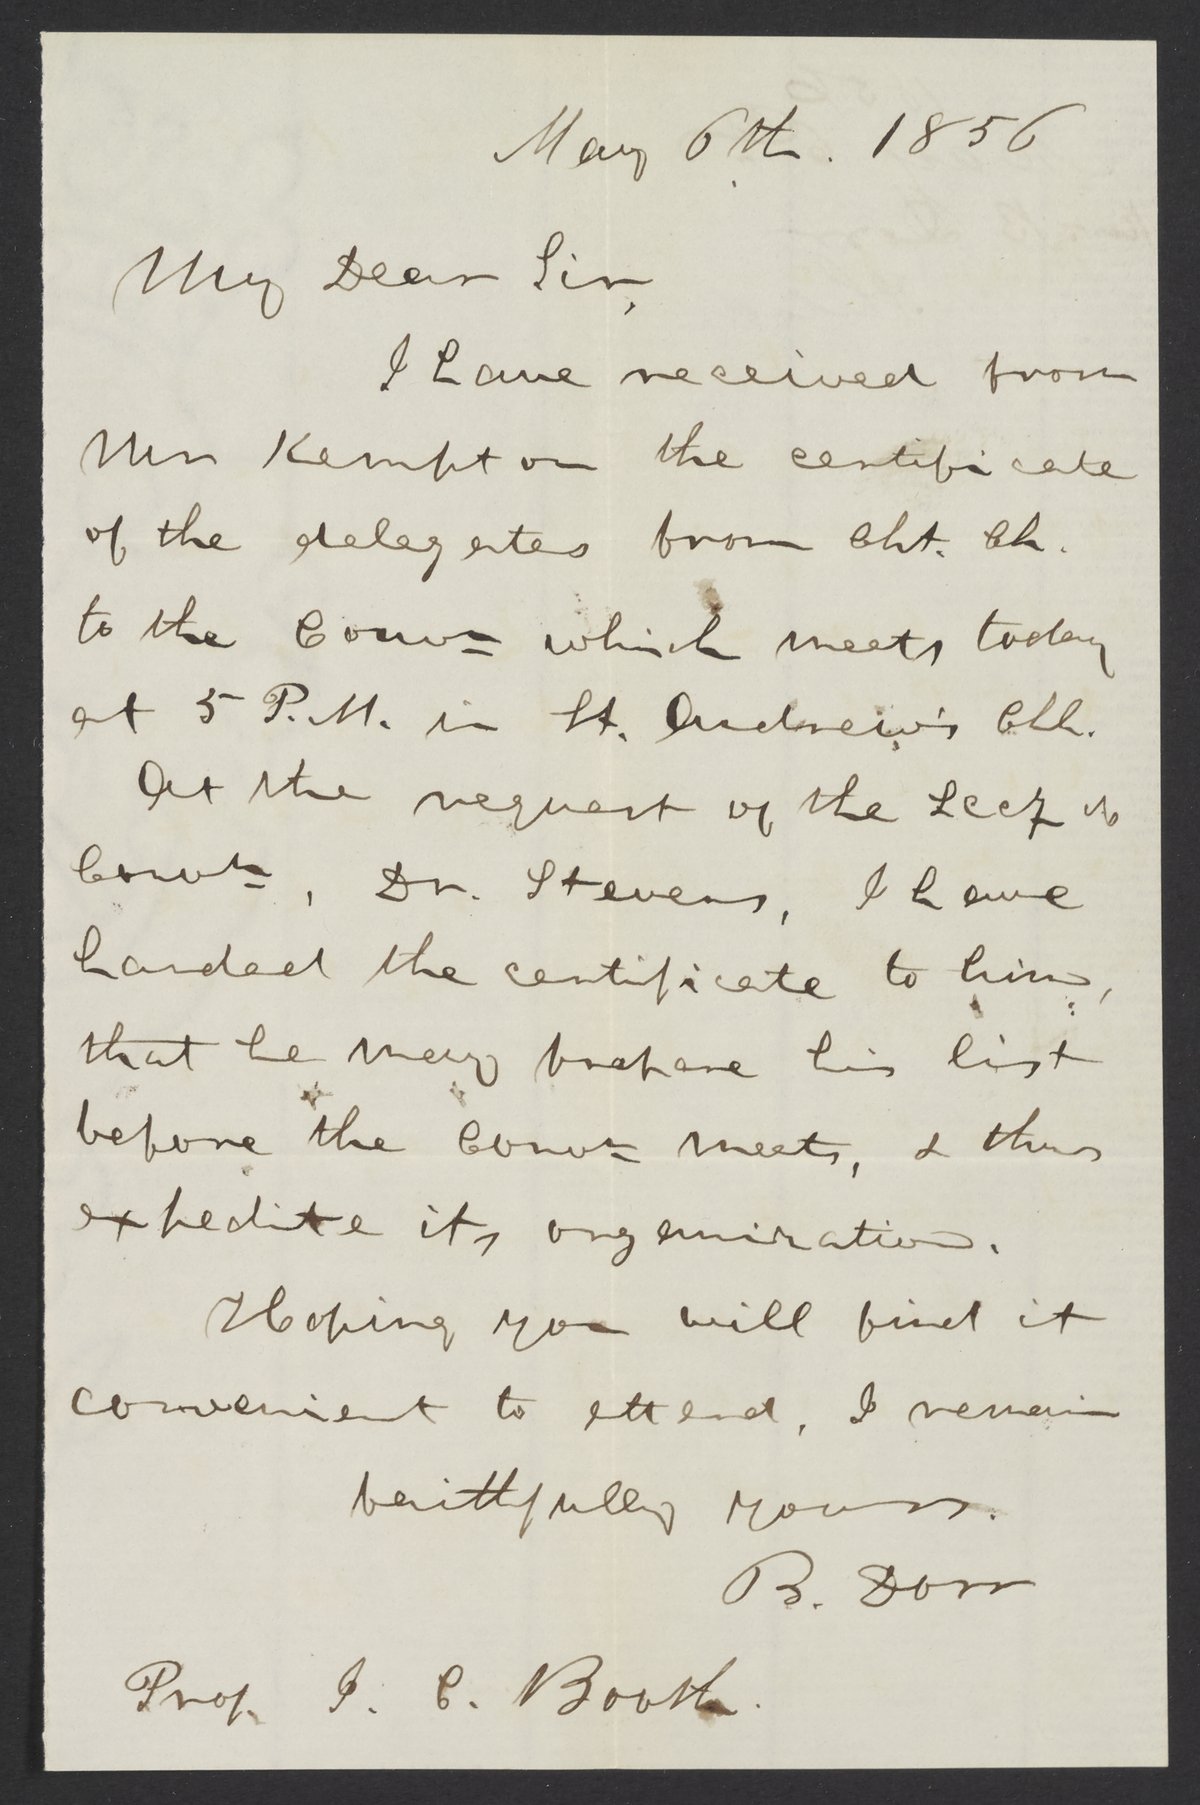 May 6th. 1856
My Dear Sir,
I have received from
Mr Kempton the certificate
of the delegates from Cht. Ch.
to the Convn which meets today
at 5 P.M. in St. Andrew's Chh.
At the request of the Secy of
Convtn, Dr. Stevens, I have
handed the certificate to him,
that he may prepare his list
before the Convn meets, & thus
expedite its organization.
Hoping you will find it
convenient to attend, I remain
faithfully yours.
B. Dorr
Prof. J. C. Booth.